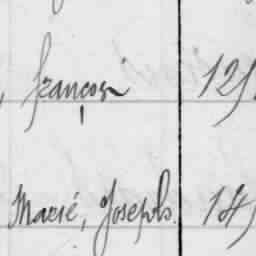 , françois 121
Marié, Joseph. 14